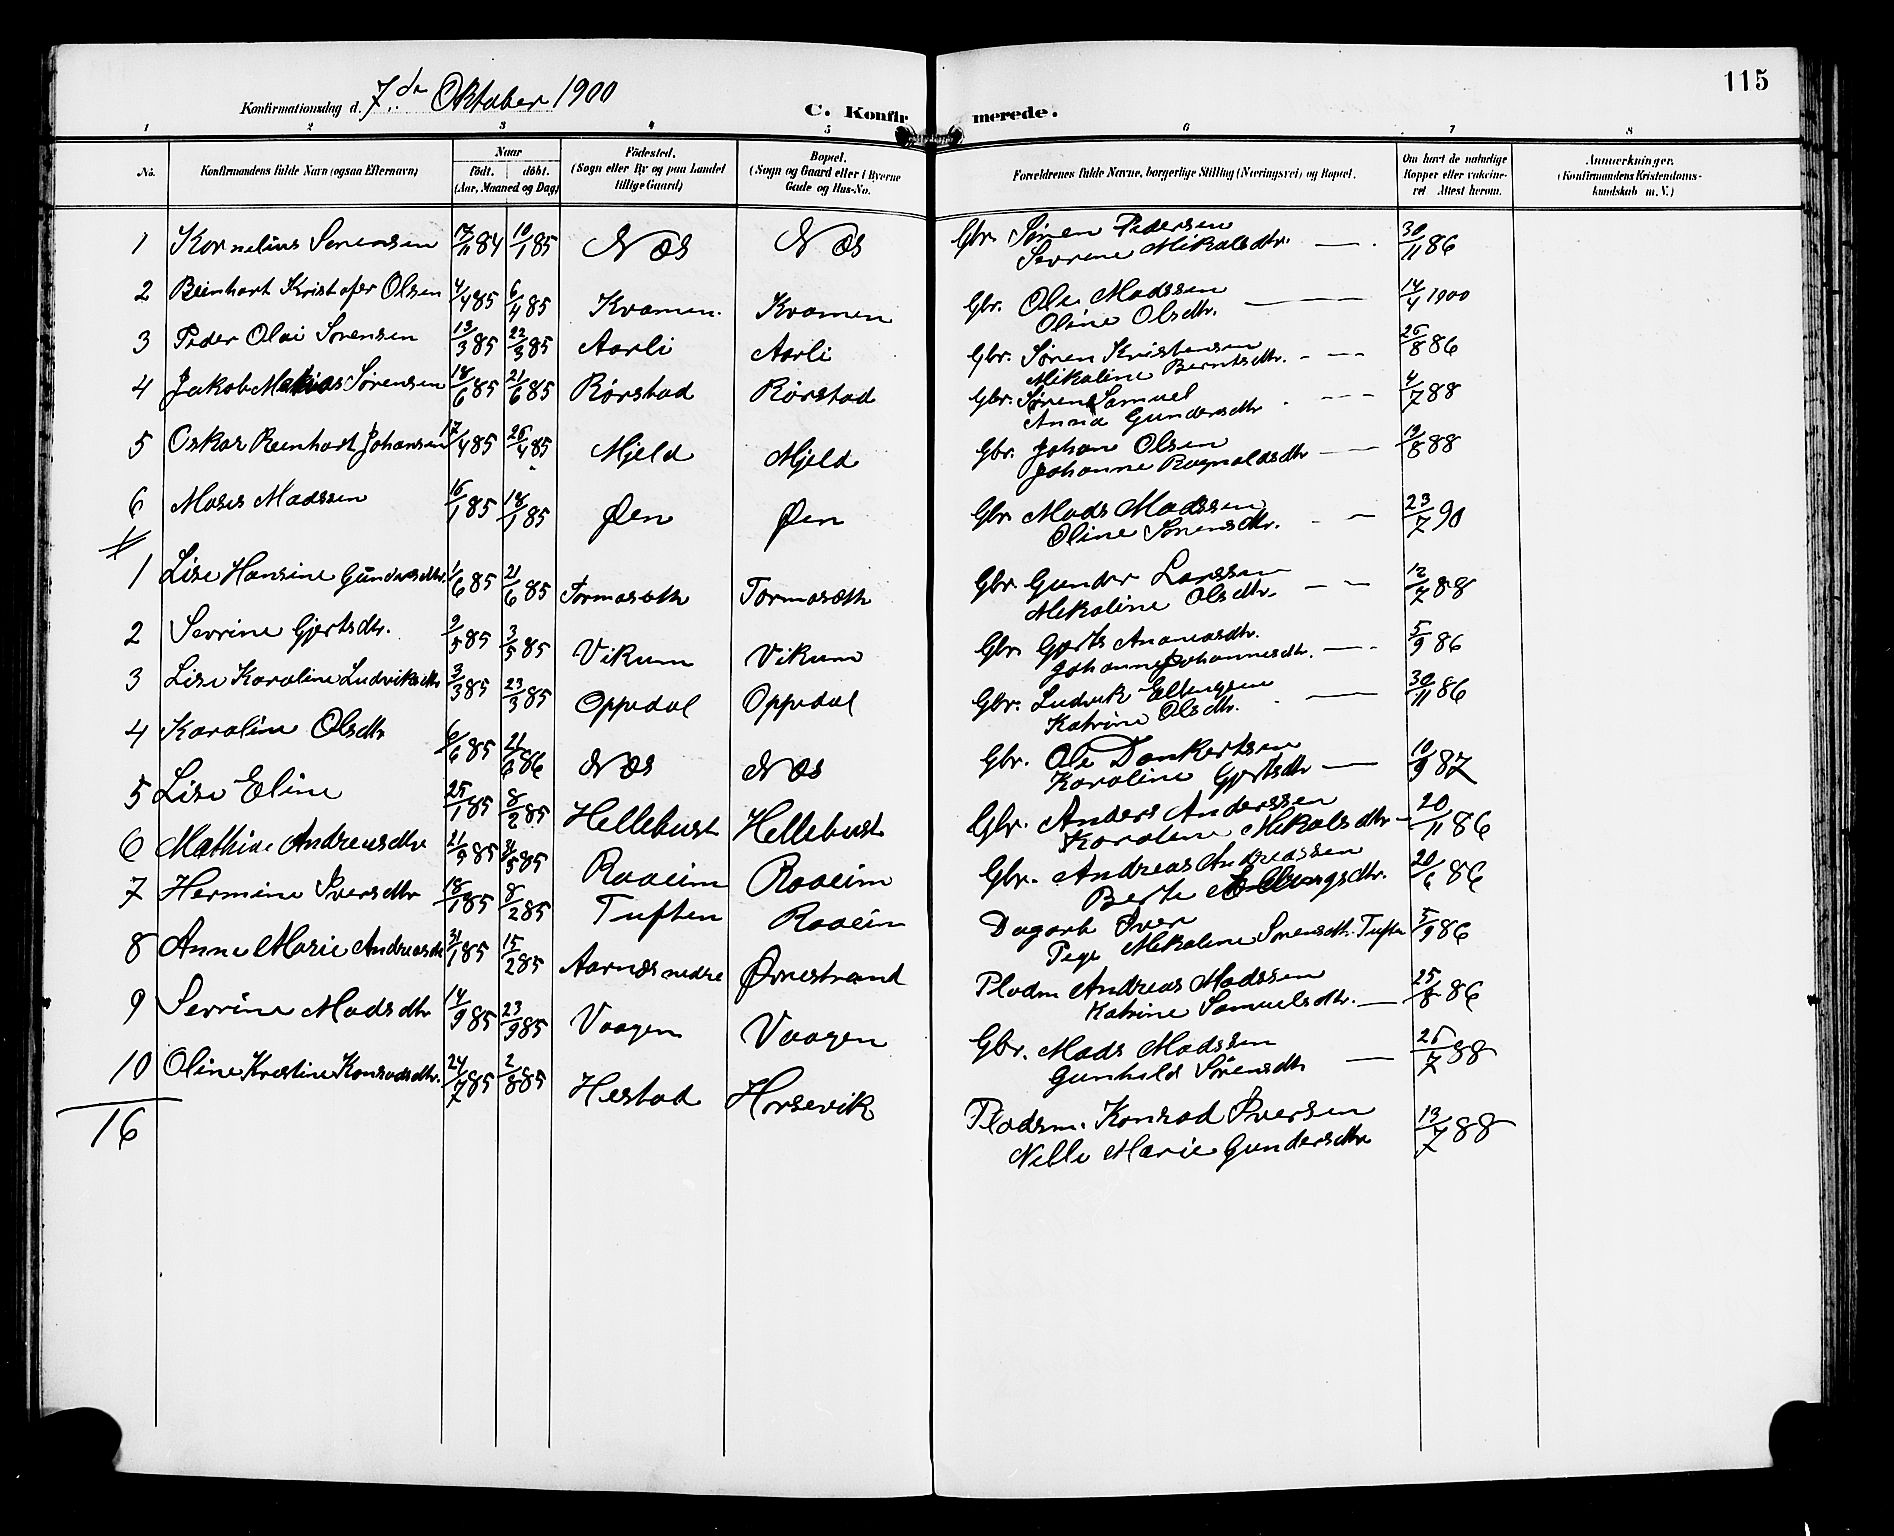 115
Konfirmationsdag d. 7de Oktober 1900
C. Konfirmerede.
1 2 3 4 5 6 7 8
No. Konfirmandens fulde Navn (ogsaa Efternavn) Naar födt. döbt. (Aar, Maaned og Dag) Födested. (Sogn eller By og paa Landet tillige Gaard) Bopæl. (Sogn og Gaard eller i Byerne Gade og Hus-No. Forældrenes fulde Navne, borgerlige Stilling (Næringsvei) og Bopæl. Om havt de naturlige Kopper eller vaccineret Attest herom. Anmærkninger. (Konfirmandens Kristendomskundskab m. V.)
1 Kornelius Sørensen 17/11 84 10/1 85 Næs Næs Gbr. Søren Pedersen 30/11 86
Sevrine Mikalsdtr. —
2 Beinhart Kristofer Olsen 4/4 85 6/4 85 Kvamen. Kvamen Gbr. Ole Madssen 14/4 1900
Oline Olsdtr. —
3 Peder Olai Sørensen 13/3 85 22/3 85 Aarli Aarli Gbr. Søren Kristensen 26/8 86
Mikaline Berntsdtr. —
4 Jakob Mathias Sørensen 18/6 85 21/6 85 Rørstad Rørstad Gbr. Søren Samuel 4/7 88
Anna Gundersdtr —
5 Oskar Reinhart Johansen 17/4 85 26/4 85 Mjeld Mjeld Gbr. Johan Olsen 19/8 88
Johanne Ragnaldsdtr —
6 Moses Madssen 16/1 85 18/1 85 Øen Øen Gbr Mads Madssen 23/7 90
Oline Sørensdtr. —
1 Lise Hansine Gundersdtr. 1/6 85 21/6 85 Tormaseth Tormasæth Gbr Gunder Larssen 12/7 88
Mikaline Olsdtr. —
2 Sevrine Gjertsdtr. 2/5 85 3/5 85 Vikum Vikum Gbr Gjerts Ananiasdtr. 5/9 86
Johanne Johannesdtr. —
3 Lise Karoline Ludviksdtr 3/3 85 23/3 85 Oppedal Oppedal Gbr. Ludvik Ellingsen 30/11 86
Katrine Olsdtr. —
4 Karoline Olsdtr 6/6 85 21/6 86 Næs Næs Gbr. Ole Dankertsen 10/9 87
Karoline Gjertsdtr —
5 Lise Eline 25/1 85 8/2 85 Hellebust Hellebust Gbr. Anders Anderssen 20/11 86
Karoline Mikalsdtr —
6 Mathine Andreasdtr 21/5 85 31/5 85 Raaeim Raaeim Gbr. Andreas Andreassen 20/6 86
Berte Ellingsdtr.
7 Hermine Iversdtr 18/1 85 8/2 85 Tuften Raaeim Dagarb Iver 5/9 86
Pige Mikaline Sørensdtr. Tuften
8 Anne Marie Andreasdtr 31/1 85 15/2 85 Aarnæs nedre Ørnestrand Pladsm Andreas Madssen 25/8 86
Katrine Samuelsdtr. —
9 Sevrine Madsdtr 14/9 85 23/9 85 Vaagen Vaagen Gbr. Mads Madssen 26/7 88
Gunhild Sørensdtr —
10 Oline Kristine Konradsdtr. 24/7 85 2/8 85 Hestad Horsevik Pladsm. Konrad Iversen 13/7 88
Nille Marie Gundersdtr
16